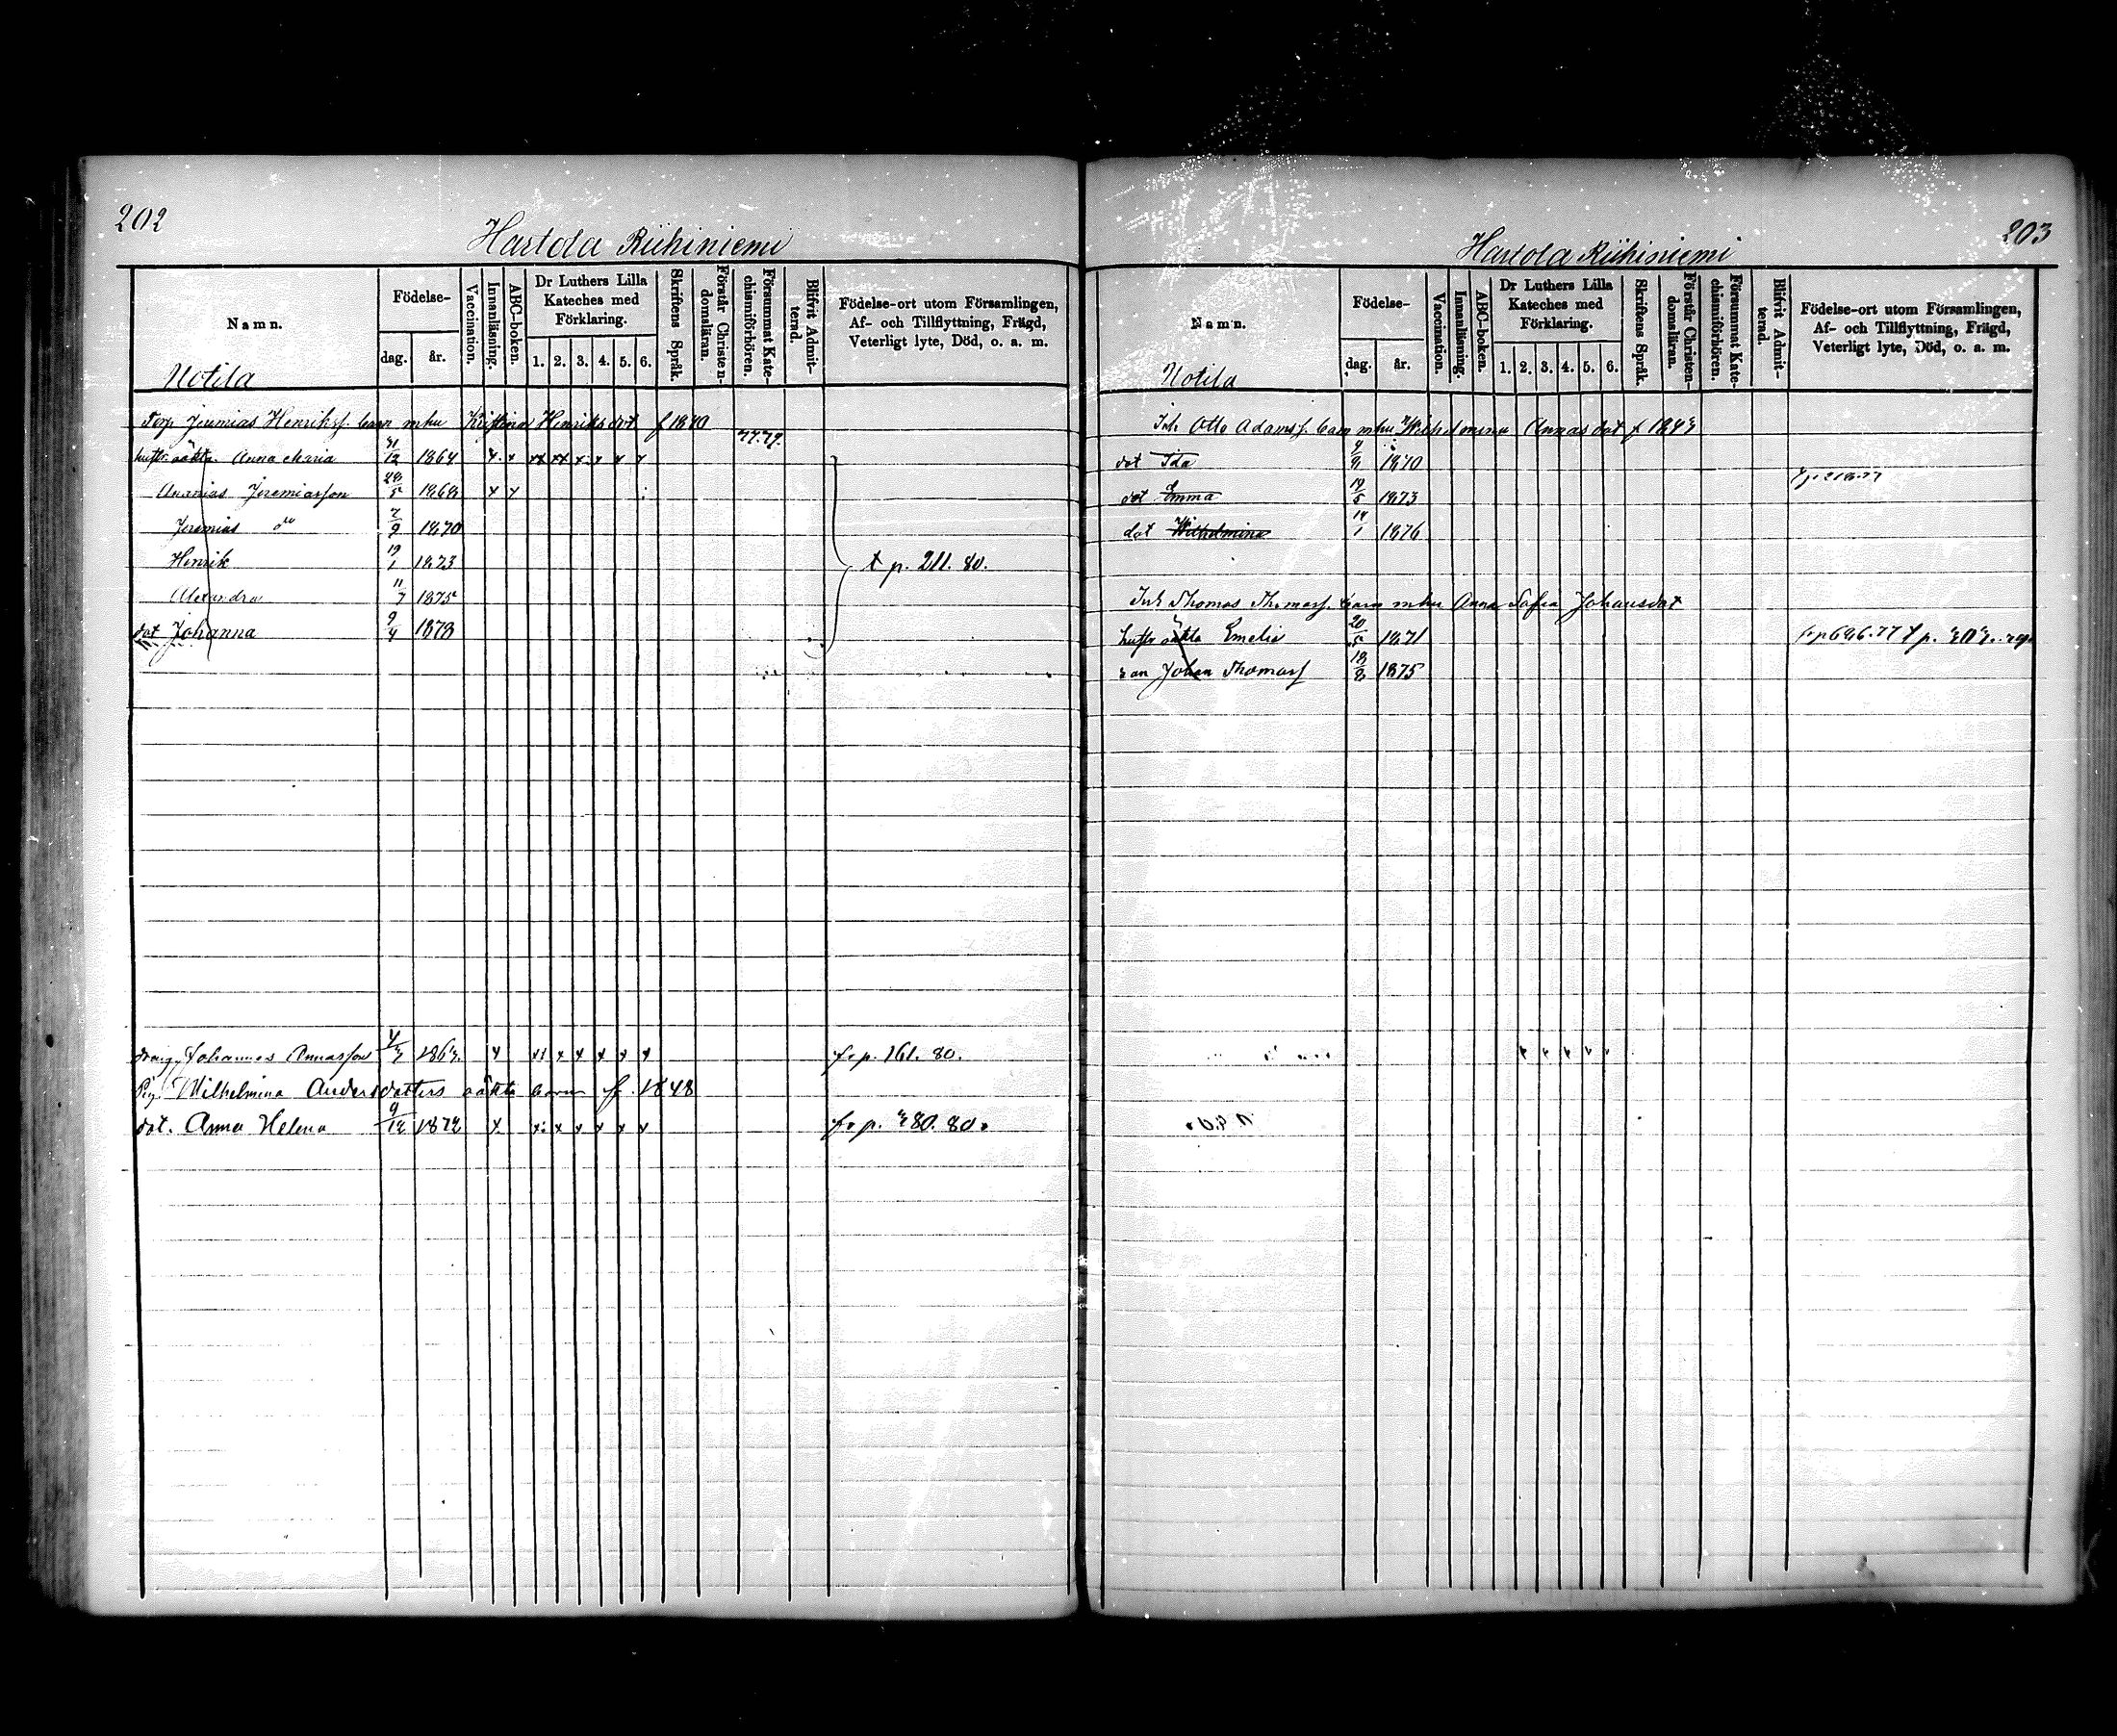 202
Hartola Riihiniemi
Namn.
Födelse-
dag.
år.
Vaccination.
Innanläsning.
ABC-boken.
Dr Luthers Lilla
Kateches med
Förklaring.
1. 2. 3. 4. 5. 6.
Skriftens Språk.
Förstår Christen-
domsläran.
Försummat Kate-
chismiförhören.
Blifvit Admit-
terad.
Födelse-ort utom Församlingen,
Af- och Tillflyttning, Frägd,
Veterligt lyte, Död, o. a. m.
Notila
Torp Jeremias Henrikss. barn mhu Kristina Henriksdot f 1840
77.79.
hustr. oäkta Anna Maria 31/12 1864 x x xx xx x x x x
Ananias Jeremiasson 28/5 1868 x x
Jeremias do 2/9 1870
Henrik 19/1 1873 t p. 211. 80.
Alexandra 11/7 1875
dot Johanna 9/4 1878
dräng Johannes Annasson x x x x x x f. p. 161. 80.
Pig. Wilhelmina Andersdotters oäkta barn f. 1848
dot. Anna Helena 9/12 1872 x x x x x x x f. p. 280. 80.
203
Hartola Riihiniemi
Namn.
Födelse-
dag.
år.
Vaccination.
Innanläsning.
ABC-boken.
Dr Luthers Lilla
Kateches med
Förklaring.
1. 2. 3. 4. 5. 6.
Skriftens Språk.
Förstår Christen-
domsläran.
Försummat Kate-
chismiförhören.
Blifvit Admit-
terad.
Födelse-ort utom Församlingen,
Af- och Tillflyttning, Frägd,
Veterligt lyte, Död, o. a. m.
Notila
Inh Otto Adamss. barn mhu Wilhelmina Annasdot f 1843
dot Ida 1870
dot Emma 19/5 1873
dot Wilhelmina 14/1 1876
Inh Thomas Thomass. barn mhu Anna Sofia Johansdot
hustr oäkta Emelia 20/5 1871
son Johan Thomass 18/8 1875